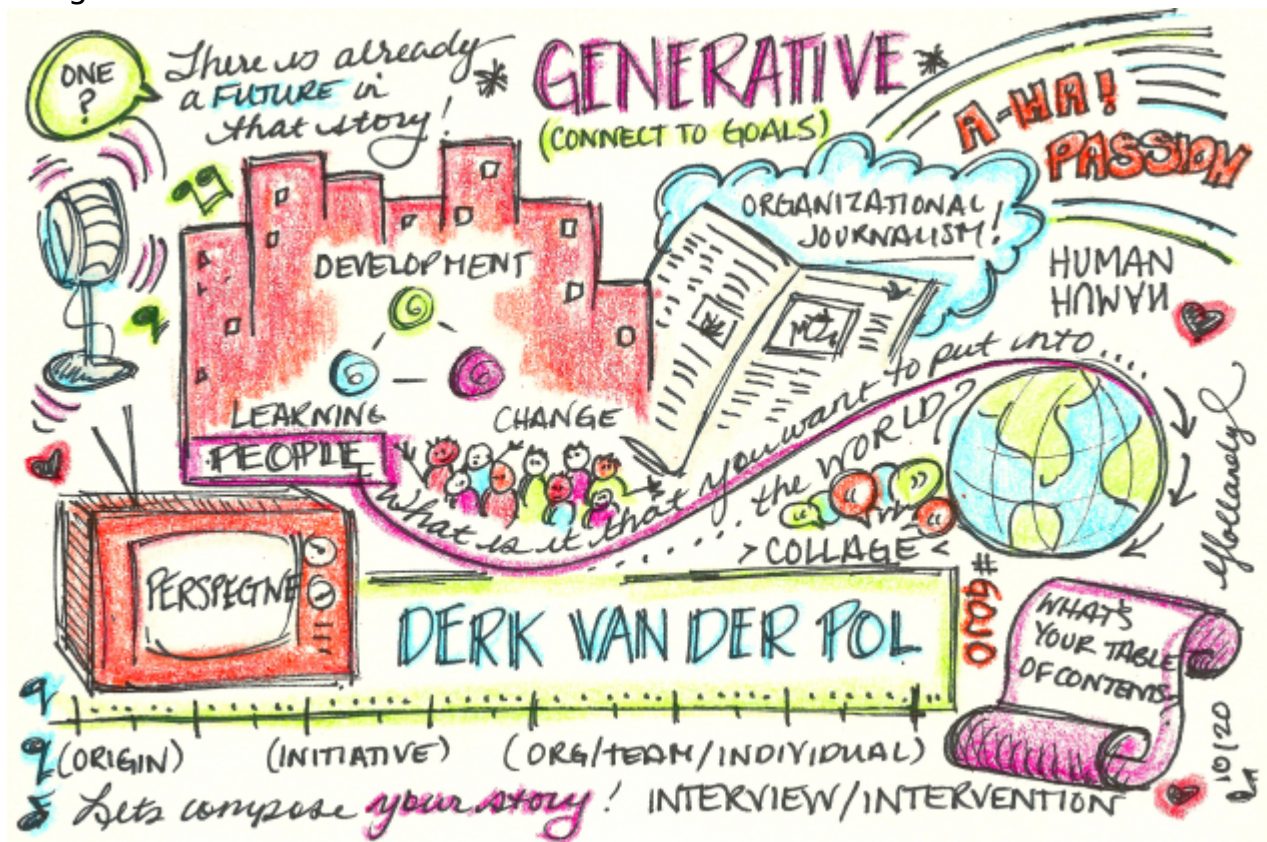 ONE
?
There is already
a FUTURE in
that story!
* GENERATIVE *
(CONNECT TO GOALS)
A-HA!
PASSION
ORGANIZATIONAL
JOURNALISM!
HUMAN
HUMAN
DEVELOPMENT
LEARNING
CHANGE
PEOPLE
What is it that you want to put into...
... the WORLD?
> COLLAGE <
PERSPECTIVE
DERK VAN DER POL
WHAT'S
YOUR TABLE
OF CONTENTS
10/20
(ORIGIN) (INITIATIVE) (ORG/TEAM/INDIVIDUAL)
Lets compose your story! INTERVIEW/INTERVENTION